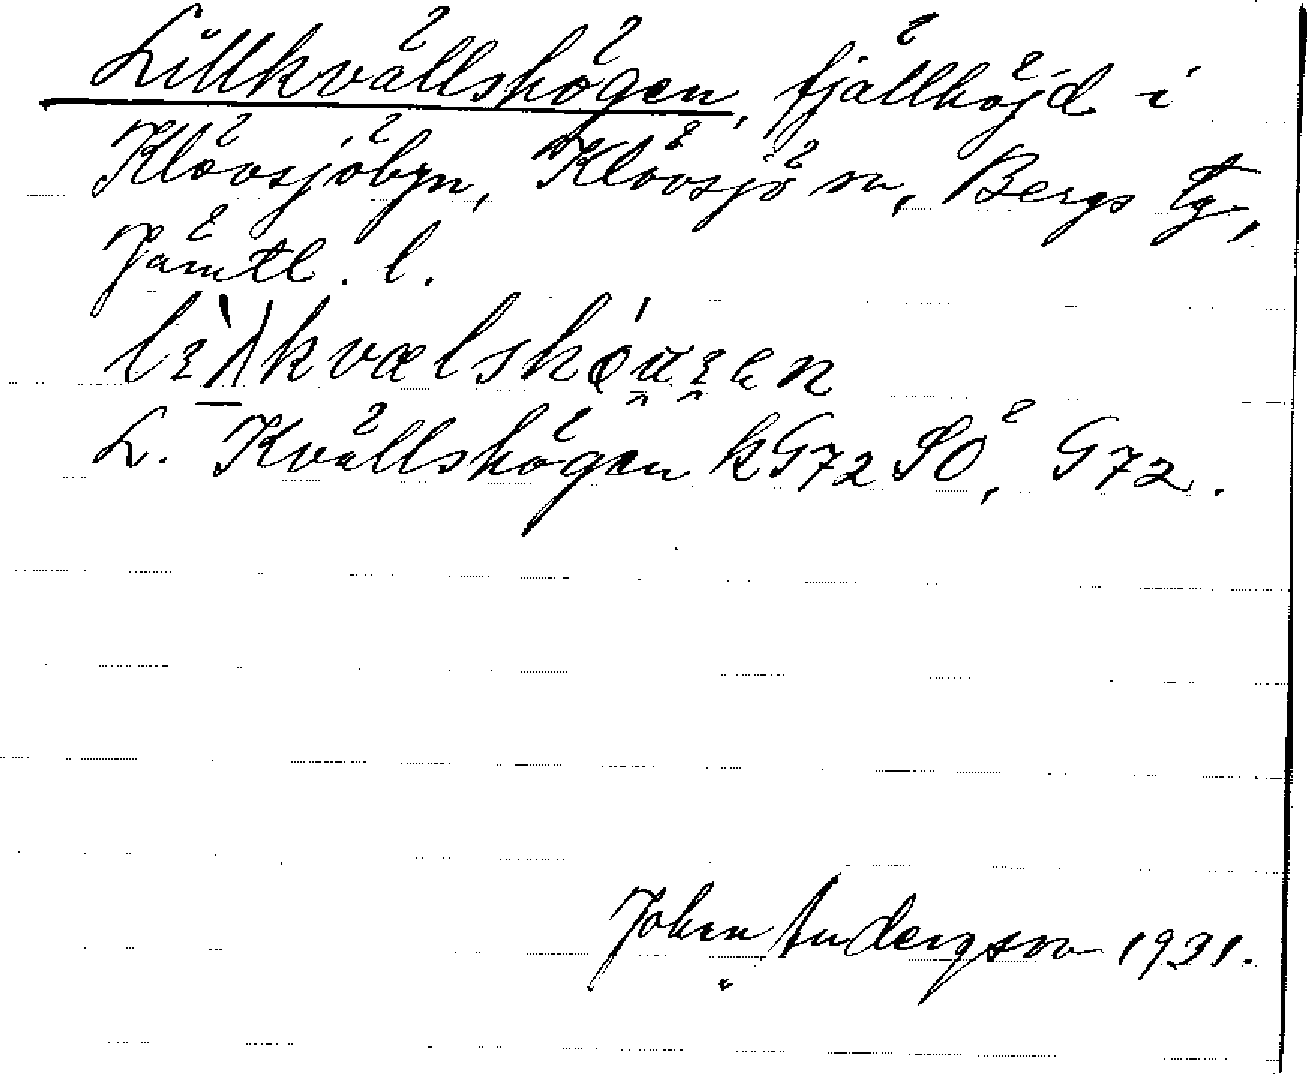 Lillkvällshögen, fjällhöjd i
Klövsjöbyn, Klövsjö sn, Bergs tg,
Jämtl. l.
L. Kvällshögen k G72 SÖ, G72.
John Andersson 1931.